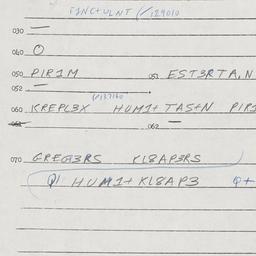 F1NC+ULNT (✓129010
030 —
040 O
050 PIR1M 051 EST3RTA,N
052 —
060 KREPL3X HUM1+ TAS+N PIR1
061 062 —
070 GREG3RS KL8AP3RS
Q1 HUM1+ KL8AP3 Q+